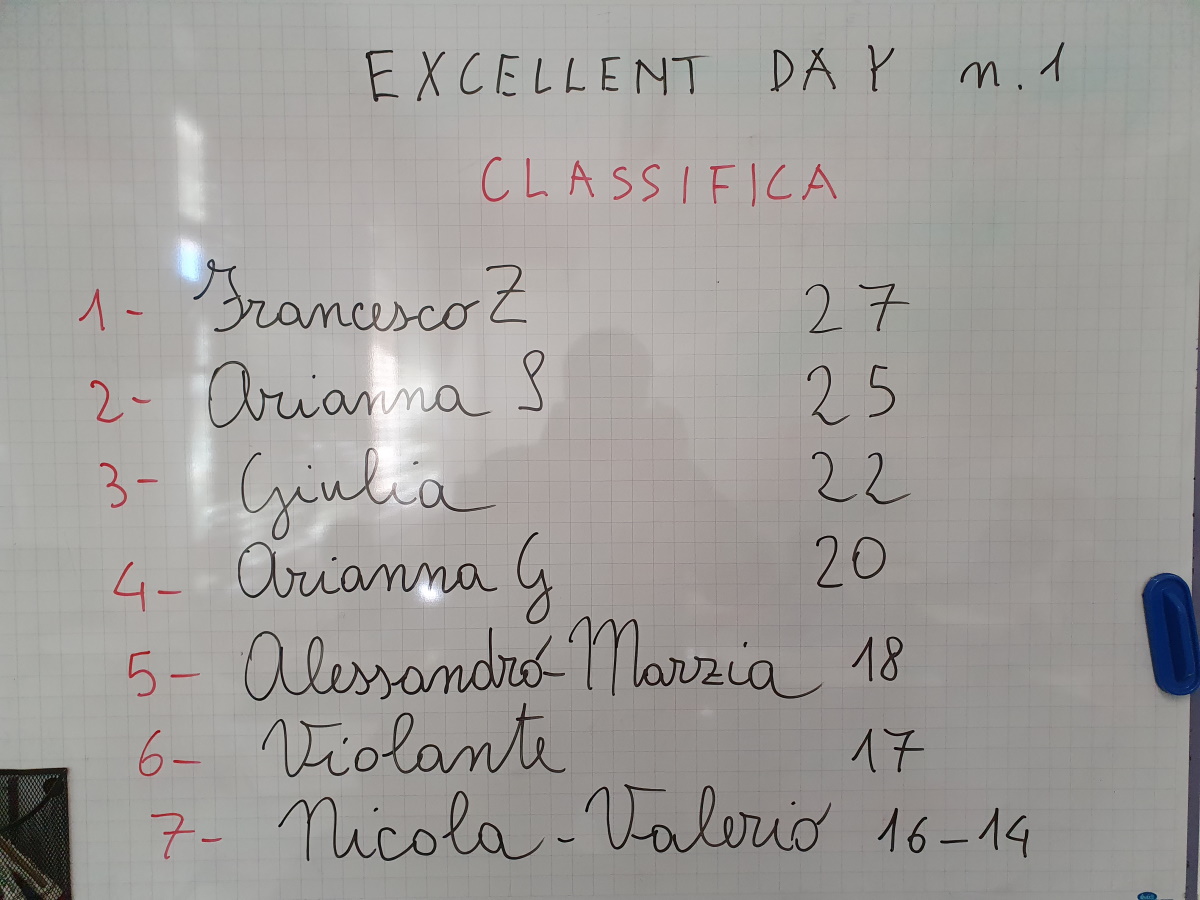 EXCELLENT DAY n. 1
CLASSIFICA
1- Francesco Z 27
2- Arianna S 25
3- Giulia 22
4- Arianna G 20
5- Alessandro-Marzia 18
6- Violante 17
7- Nicola-Valerio 16-14